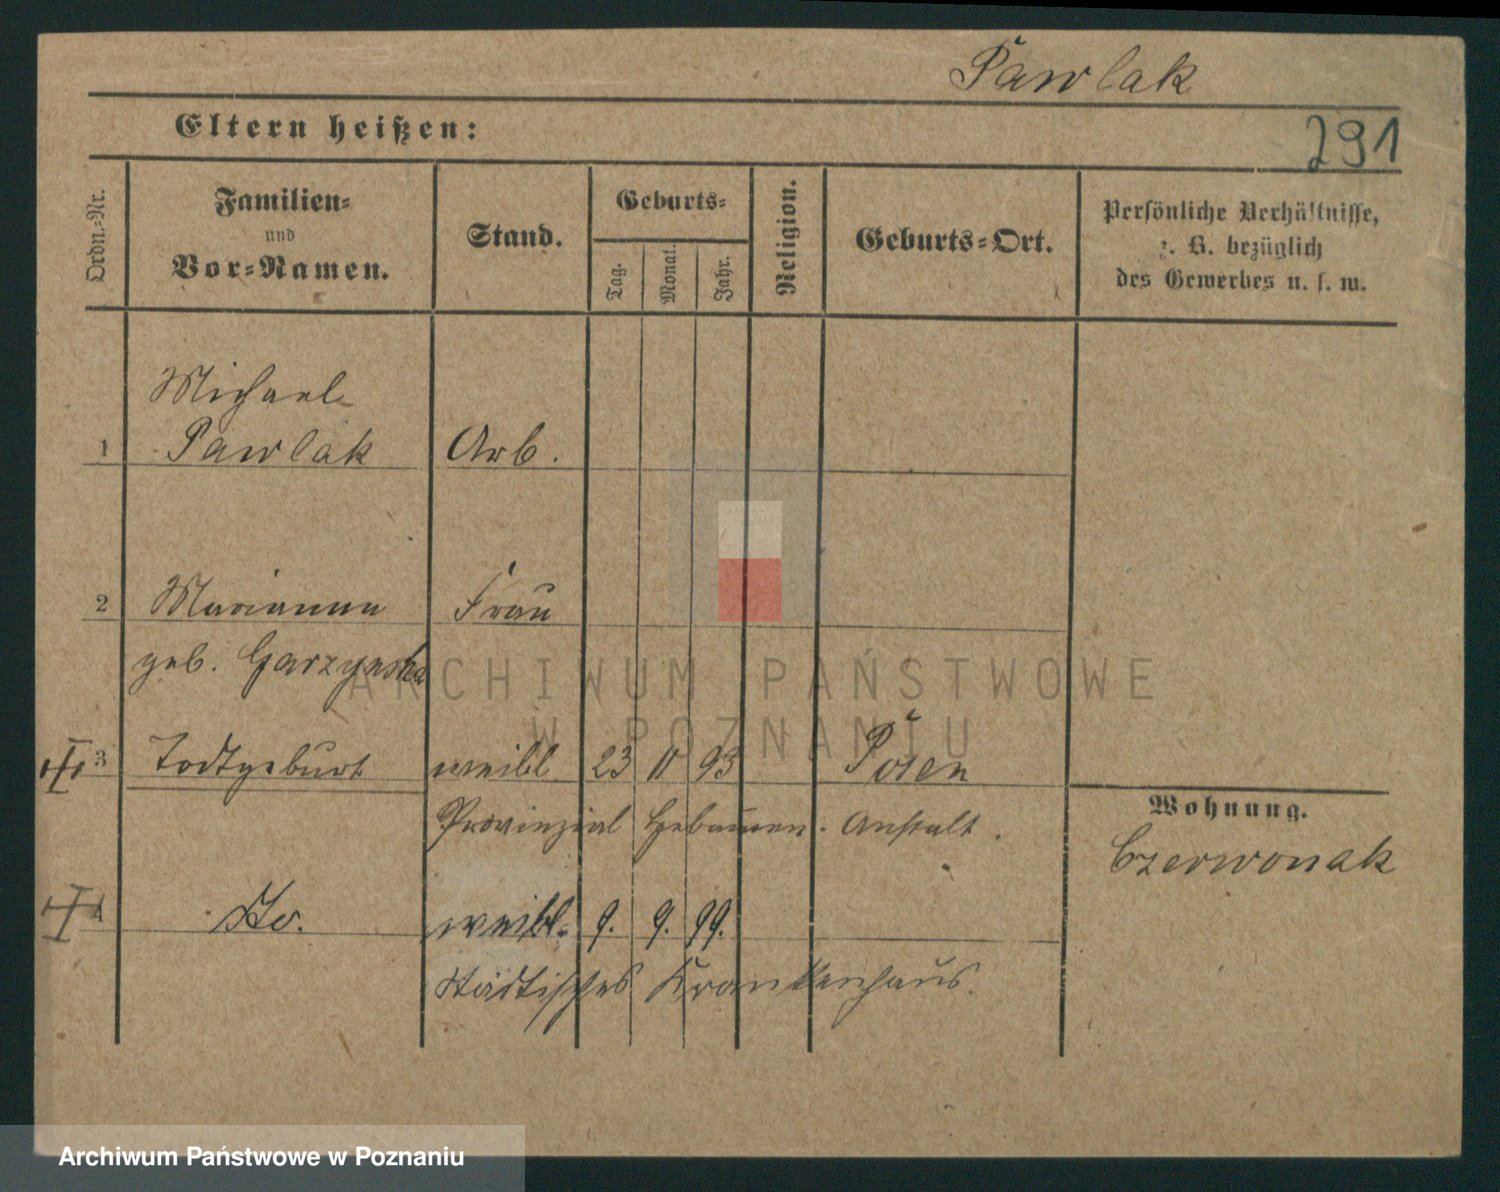 Pawlak
Eltern heißen:
291
Ordn.-Nr.
Familien-
und
Vor-Namen.
Stand.
Geburts-
Tag.
Monat.
Jahr.
Religion.
Geburts-Ort.
Persönliche Verhältnisse,
z. B. bezüglich
des Gewerbes u. s. w.
Michael
1 Pawlak Arb.
2 Marianna Frau
geb. Garzynska
3 Todtgeburt weibl 23 11 93 Posen
Provinzial Hebammen-Anstalt.
Wohnung.
Czerwonak
4 Do. weibl. 9. 9. 99.
Städtisches Krankenhaus.
ARCHIWUM PAŃSTWOWE
W POZNANIU
Archiwum Państwowe w Poznaniu